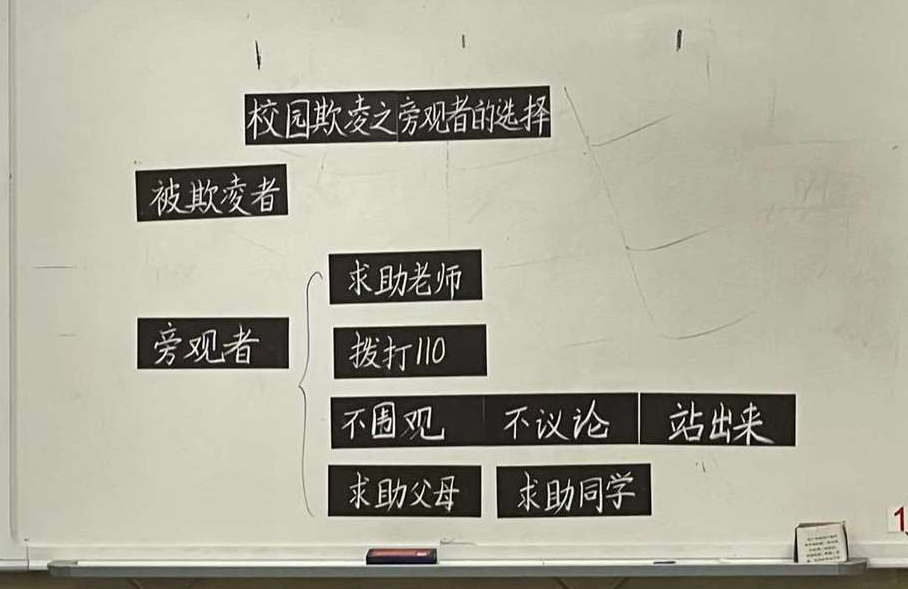 校园欺凌之旁观者的选择
被欺凌者
求助老师
旁观者
拨打110
不围观 不议论 站出来
求助父母 求助同学
1